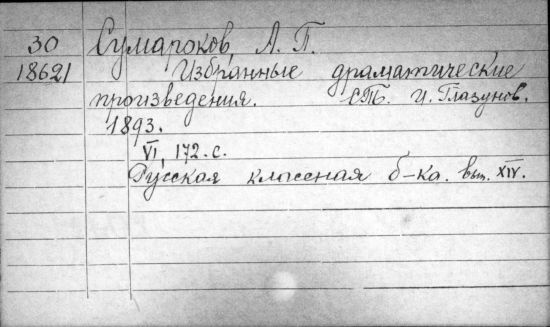 30 Сумароков, А. П.
18621 Избранные драматические
произведения. СПб. И. Глазунов.
1893.
VI, 172. с.
Русская классная б-ка. вып. XIV.